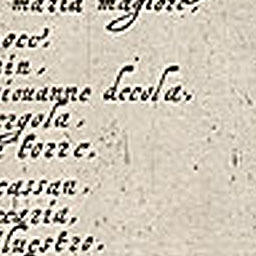 maria magiore,
oco.
in,
iouanne decola.
ergola,
torre.
cassan.
caria,
luestro.